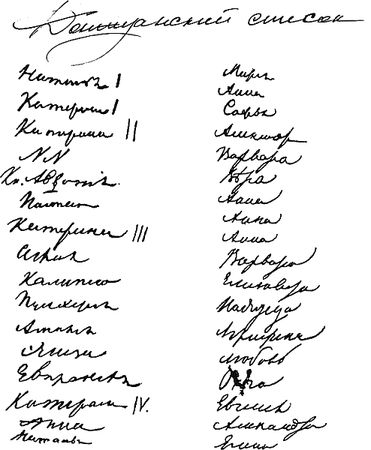 Донжуанский список
Наталья I
Катерина I
Катерина II
NN
Кн. Авдотія
Настасья
Катерина III
Аглая
Калипсо
Пульхерія
Амалія
Элиза
Евпраксея
Катерина IV.
Анна
Наталья
Мария
Анна
Софья
Александра
Варвара
Вѣра
Анна
Анна
Анна
Варвара
Елизавета
Надежда
Аграфена
Любовь
Ольга
Евгенія
Александра
Елена